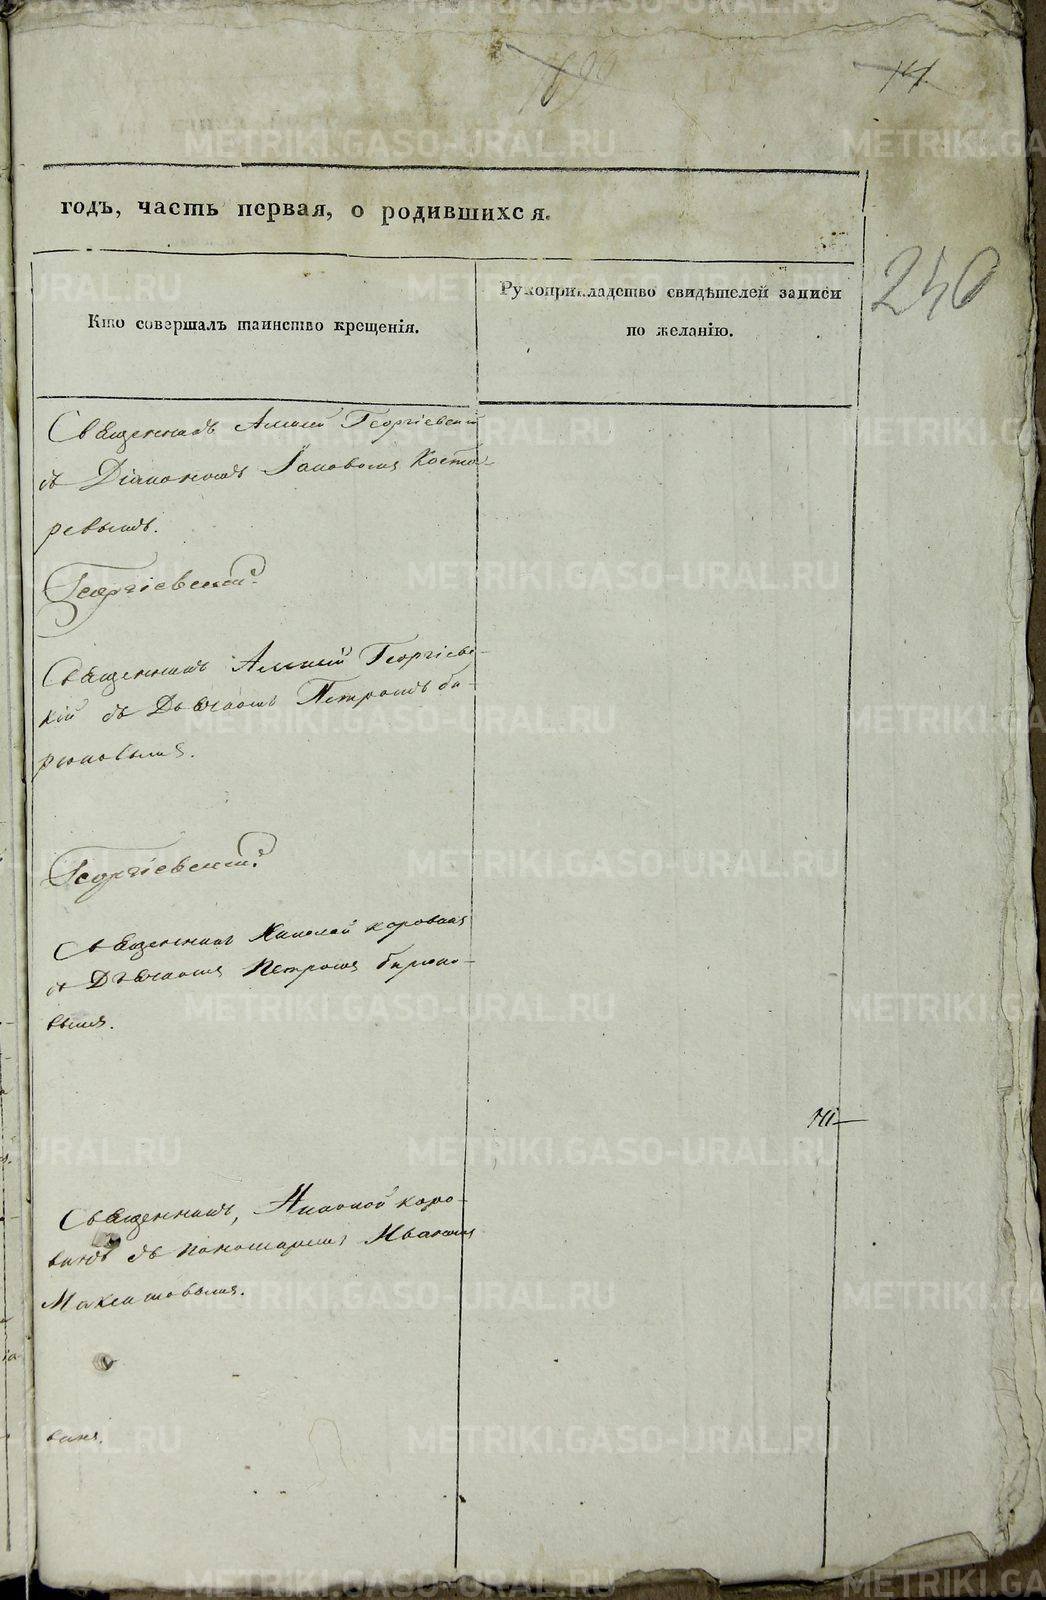 14
годъ, часть первая, о родившихся.
240
Кто совершалъ таинство крещенія.
Рукоприкладство свидѣтелей записи
по желанію.
Священникъ Алексѣй Георгіевскій
съ Діакономъ Іаковомъ Коста-
ревымъ.
Георгіевскій.
Священникъ Алексѣй Георгіевс-
кій съ Дьячкомъ Петромъ би-
рюковымъ.
Георгіевскій.
Священникъ Николай коровинъ
съ Дьячкомъ Петромъ бирюко-
вымъ.
Священникъ, Николай коро-
винъ съ пономаремъ Иваномъ
METRIKI.GASO-URAL.RU